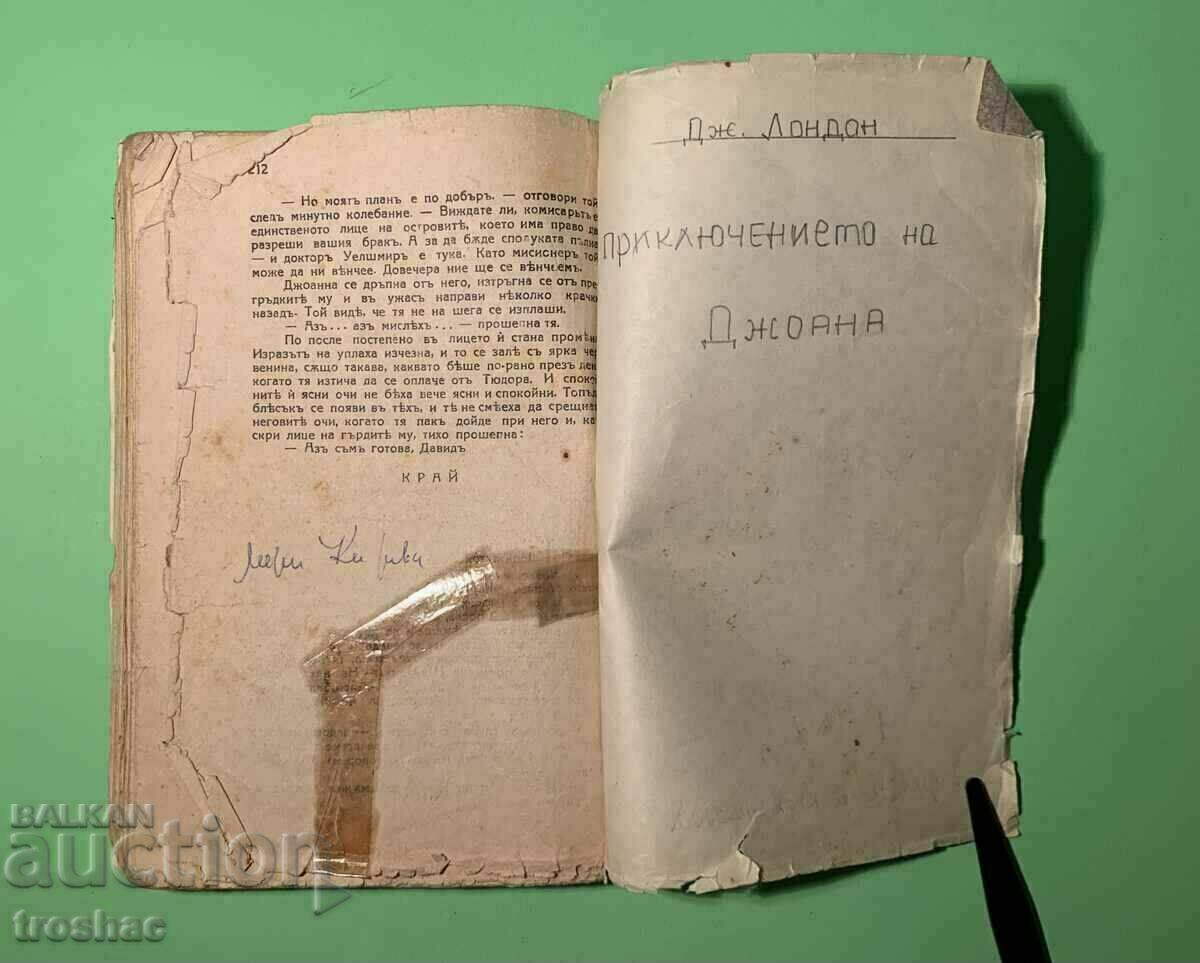 212
— Но моятъ планъ е по добъръ. — отговори той
следъ минутно колебание. — Виждате ли, комисарьтъ е
единственото лице на островитѣ, което има право да
разреши вашия бракъ. А за да бѫде сполуката пълна
— и докторъ Уелшмиръ е тука. Като мисионеръ той
може да ни вѣнчее. Довечера ние ще се вѣнчеемъ.
Джоанна се дръпна от него, изтръгна се отъ пре
гръдкитѣ му и въ ужасъ направи нѣколко крачки
назадъ. Той видѣ, че тя не на шега се изплаши.
— Азъ... азъ мислѣхъ... — прошепна тя.
По после постепено въ лицето ѝ стана промѣн
Изразътъ на уплаха изчезна, и то се залѣ съ ярка чер
венина, сѫщо такава, каквато бѣше по-рано презъ ден
когато тя изтича да се оплаче отъ Тюдора. И спокой
нитѣ ѝ ясни очи не бѣха вече ясни и спокойни. Топъл
блѣсъкъ се появи въ тѣхъ, и тѣ не смѣеха да срещна
неговитѣ очи, когато тя пакъ дойде при него и, ка
скри лице на гърдитѣ му, тихо прошепна:
— Азъ съмъ готова, Давидъ
КРАЙ
Дж. Лондон
приключението на
Джоана
BALKAN
auction
troshac